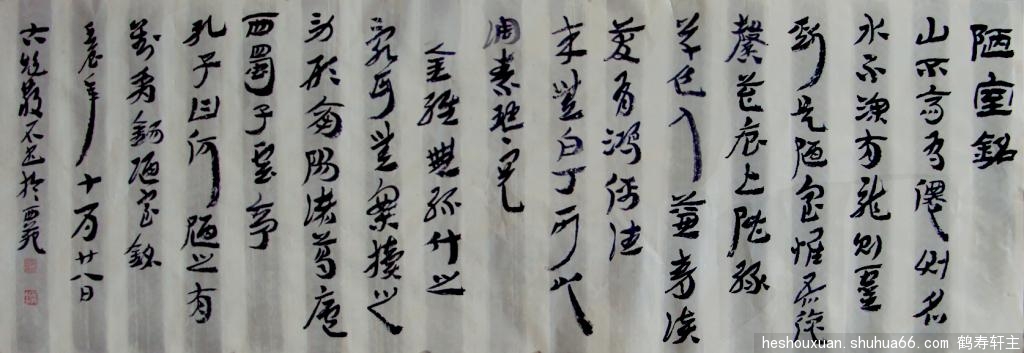 陋室銘
山不高有僊則名
水不深有龍則靈
斯是陋室惟吾德
馨苔痕上階綠
草色入簾青談
笑有鴻儒往
来無白丁可以
調素琴閱
金經無絲竹之
亂耳無案牘之
勞形南陽諸葛廬
西蜀子雲亭
孔子曰何陋之有
劉禹錫陋室銘
壬辰年十月廿八日
於西苑
heshouxuan.shuhua66.com 鹤寿轩主